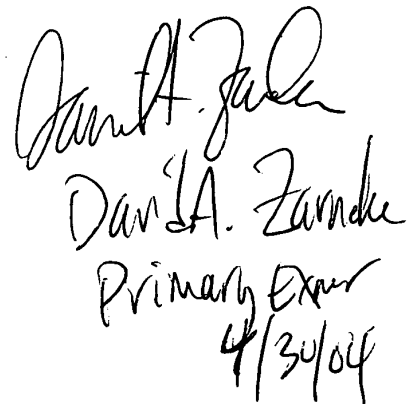 David A. Zarneke
David A. Zarneke
Primary Exmr
4/30/04